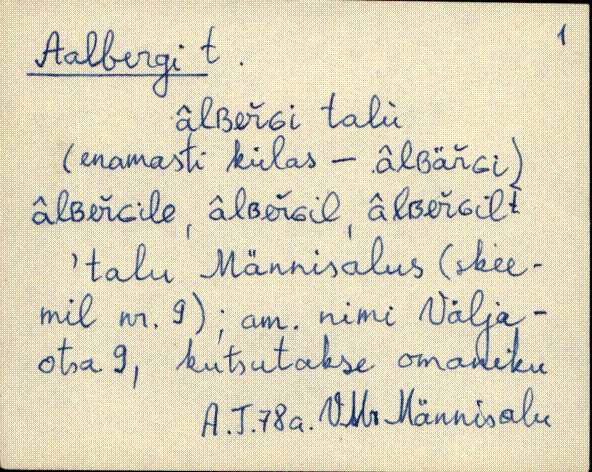 1
Aalbergi t.
âlʙeřɢi talù
(enamasti külas – âlʙäřɢi)
âlʙeřɢile, âlʙeřɢil, âlʙeřɢilt
'talu Männisalus (skee-
mil nr. 9); am. nimi Välja-
otsa 9, kutsutakse omaniku
A.T.78a. VMr Männisalu